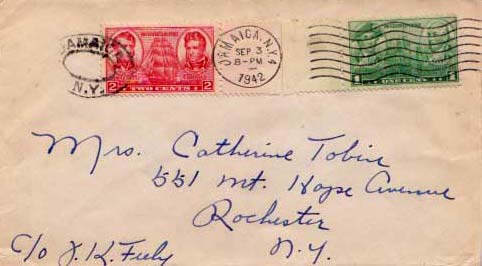 JAMAICA
N.Y.
2 TWO CENTS 2
JAMAICA, N.Y. 4
SEP 3
8-PM
1942
1 ONE CENT 1
Mrs. Catherine Tobin
551 Mt. Hope Avenue
Rochester
N.Y.
c/o J. K. Feely